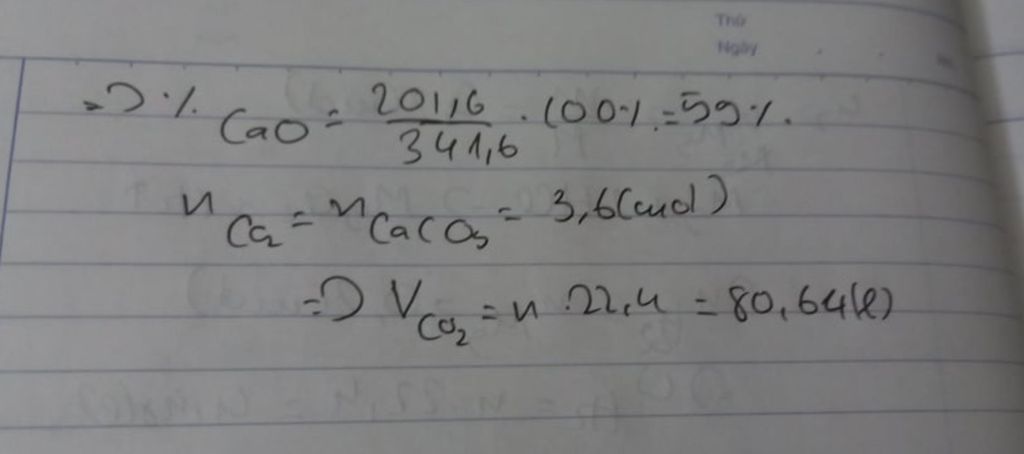 Thứ
Ngày
=> % CaO = 201,6 / 341,6 . 100% = 59%.
n CO2 = n CaCO3 = 3,6 (mol)
=> V CO2 = n . 22,4 = 80,64 (l)